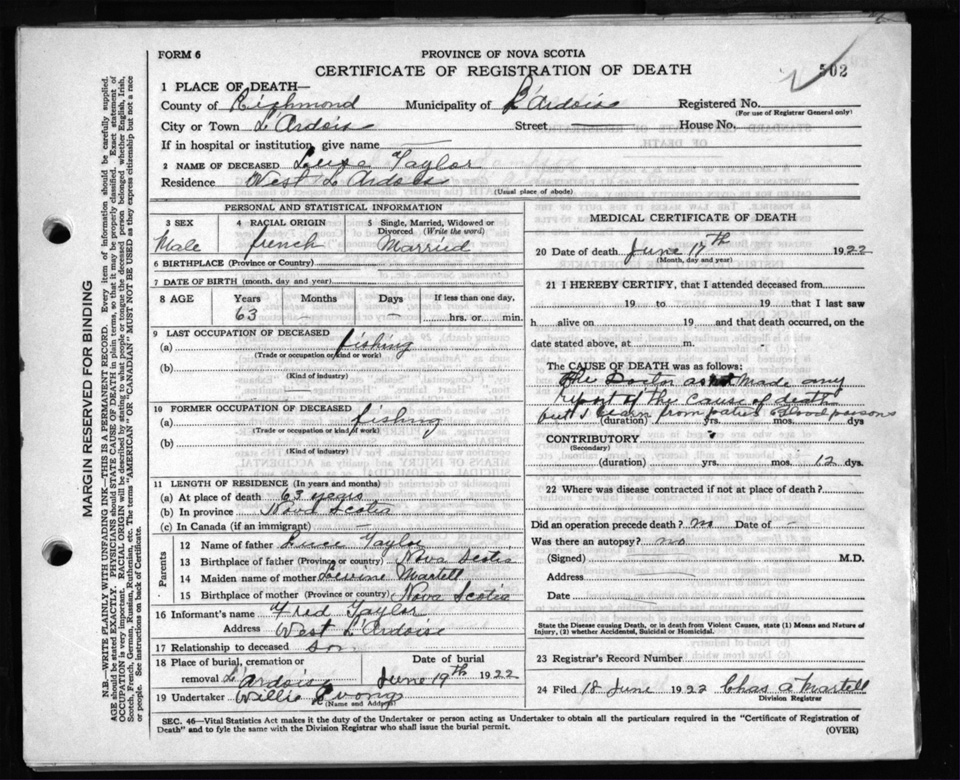 FORM 6
PROVINCE OF NOVA SCOTIA
CERTIFICATE OF REGISTRATION OF DEATH
502
1 PLACE OF DEATH—
County of Richmond Municipality of L'Ardoise Registered No.
(For use of Registrar General only)
City or Town L'Ardois Street — House No.
If in hospital or institution, give name —
2 NAME OF DECEASED Taylor
Residence West L'Ardois
(Usual place of abode)
PERSONAL AND STATISTICAL INFORMATION
3 SEX Male
4 RACIAL ORIGIN french
5 Single, Married, Widowed or Divorced (Write the word) Married
6 BIRTHPLACE (Province or Country)
7 DATE OF BIRTH (month, day and year)
8 AGE Years Months Days If less than one day,
63 — — hrs. or min.
9 LAST OCCUPATION OF DECEASED
(a) fishing
(Trade or occupation or kind or work)
(b)
(Kind of industry)
—
10 FORMER OCCUPATION OF DECEASED
(a) fishing
(Trade or occupation or kind of work)
(b)
(Kind of industry)
11 LENGTH OF RESIDENCE (In years and months)
(a) At place of death 63 years
(b) In province Nova Scotia
(c) In Canada (if an immigrant) —
Parents
12 Name of father Taylor
13 Birthplace of father (Province or country) Nova Scotia
14 Maiden name of mother Martell
15 Birthplace of mother (Province or country) Nova Scotia
16 Informant's name Fred Taylor
Address West L'Ardoise
17 Relationship to deceased son
18 Place of burial, cremation or removal L'ardoise
Date of burial June 19th 1922
19 Undertaker Willie
(Name and Address)
MEDICAL CERTIFICATE OF DEATH
20 Date of death June 17th 1922
(Month, day and year)
21 I HEREBY CERTIFY, that I attended deceased from
19 to 19 that I last saw
h alive on 19 and that death occurred, on the
date stated above, at m.
The CAUSE OF DEATH was as follows:
the Doctor as not made any
report of the cause of death
but I learn from Blood poisons
(duration) yrs. mos. dys
CONTRIBUTORY
(Secondary)
(duration) yrs. mos. 12 dys.
22 Where was disease contracted if not at place of death?
Did an operation precede death? no Date of —
Was there an autopsy? no
(Signed) M.D.
Address
Date
State the Disease causing Death, or in death from Violent Causes, state (1) Means and Nature of
Injury, (2) whether Accidental, Suicidal or Homicidal.
23 Registrar's Record Number
24 Filed 18 June 1922 Chas a Martell
Division Registrar
SEC. 46—Vital Statistics Act makes it the duty of the Undertaker or person acting as Undertaker to obtain all the particulars required in the "Certificate of Registration of
Death" and to fyle the same with the Division Registrar who shall issue the burial permit.
(OVER)
MARGIN RESERVED FOR BINDING
N.B.—WRITE PLAINLY WITH UNFADING INK—THIS IS A PERMANENT RECORD. Every item of information should be carefully supplied.
AGE should be stated EXACTLY. PHYSICIANS should STATE CAUSE OF DEATH in plain terms, so that it may be properly classified. Exact statement of
OCCUPATION is very important. RACIAL ORIGIN will be described by stating to what people or tongue the deceased person belonged whether English, Irish,
Scotch, French, German, Russian, Ruthenian, etc. The terms "AMERICAN" OR "CANADIAN" MUST NOT BE USED as they express citizenship but not a race
or people. See instructions on back of Certificate.